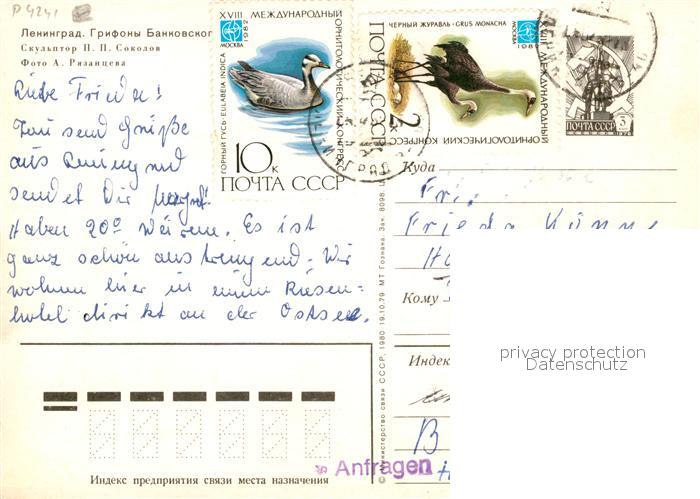 P 4241
Ленинград. Грифоны Банковског
Скульптор П. П. Соколов
Фото А. Рязанцева
Liebe Frieda!
Tausend Grüße
aus Leningrad
sendet Dir
Haben 20° Wärme. Es ist
ganz schön anstrengend. Wir
wohnen hier in einem Riesen-
hotel direkt an der Ostsee.
XVIII МЕЖДУНАРОДНЫЙ ОРНИТОЛОГИЧЕСКИЙ КОНГРЕСС
МОСКВА 1982
ГОРНЫЙ ГУСЬ · EULABEIA INDICA
10 к
ПОЧТА СССР
ЧЕРНЫЙ ЖУРАВЛЬ · GRUS MONACHA
XVIII МЕЖДУНАРОДНЫЙ ОРНИТОЛОГИЧЕСКИЙ КОНГРЕСС
МОСКВА 1982
2 к
ПОЧТА СССР
ПОЧТА СССР 3
Куда
Fr.
Frieda
Кому
Индек
В
© Министерство связи СССР, 1980 19.10.79 МТ Гознака. Зак. 8098.
privacy protection
Datenschutz
Anfragen
Индекс предприятия связи места назначения